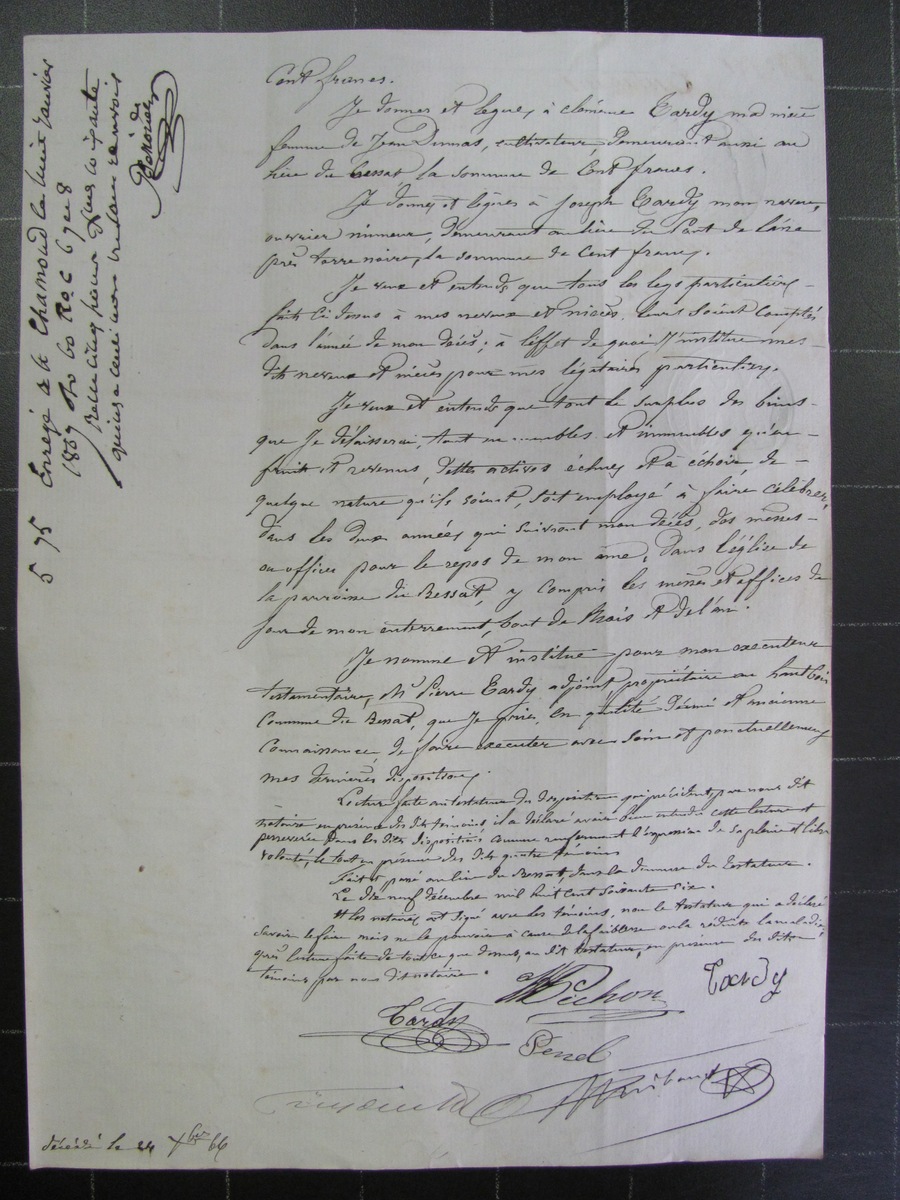 Cent francs.
Je donne et lègue, à clémence Tardy ma nièce
femme de Jean Dumas, cultivateur, demeurant aussi au
lieu du Bessat la somme de Cent francs.
Je donne et lègue à Joseph Tardy mon neveu,
ouvrier mineur, demeurant au lieu du Pont de l'âne
près terre noire, la somme de Cent francs.
Je veux et entends que tous les legs particuliers
faits ci dessus à mes neveux et nièces leurs soient comptés
dans l'année de mon décès; à l'effet de quoi J'institue mes
dits neveux et nièces pour mes légataires particuliers.
Je veux et entends que tout le surplus des biens
que Je délaisserai, tant en meubles et immeubles qu'en
fruits et revenus, dettes actives échues et à échoir, de
quelque nature qu'ils soient, soit employé à faire célébrer,
dans les deux années qui suivront mon décès, des messes
ou offices pour le repos de mon âme, dans l'église de
la parroisse du Bessat, y compris les messes et offices du
Jour de mon enterrement, bout de Mois et de l'an.
Je nomme et institue pour mon executeur
testamentaire, Mr Pierre Tardy adjoint propriétaire au haut
Commune du Bessat, que Je prie, en qualité d'ami et ancienne
Connaissance, de faire executer avec soin et ponctuellement
mes dernières dispositions.
Lecture faite au testateur des dispositions qui précèdent par nous dit
notaire en présence des dits témoins il a déclaré avoir bien entendu cette lecture et
perseverer dans les dites dispositions comme renfermant l'expression de sa pleine et libre
volonté, le tout en présence des dits quatre témoins
Fait et passé au lieu du Bessat, dans la demeure du testateur.
Le dix neuf décembre mil huit cent soixante six.
Et les notaires ont signé avec les témoins, non le testateur qui a déclaré
savoir le faire mais ne le pouvoir à cause de la faiblesse ou la réduite la maladie,
après lecture faite de tout ce que dessus, au dit testateur, en présence des dits
témoins par nous dit notaire.
Pichon
Tardy
Tardy
Penel
5 75
Enregé à St Chamond le huit Janvier
1867 fo 60 Ro C 6 7 et 8
Reçu cinq francs
décédé le 24 Xbre 66